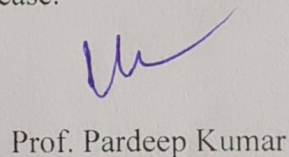 Prof. Pardeep Kumar